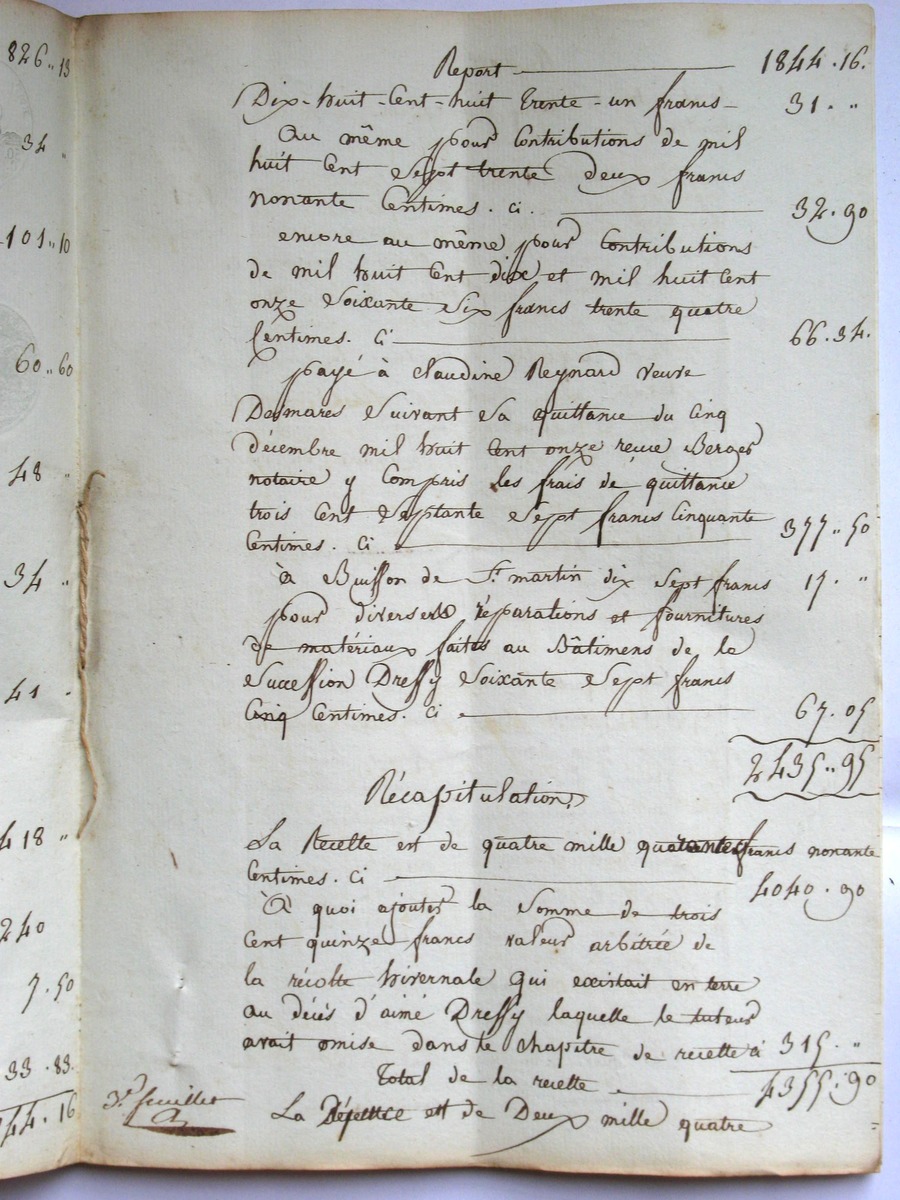 826 .. 13
34 ..
101 .. 10
60 .. 60
48 ..
34 ..
41 .
418 ..
240
7.50
33.83.
44.16
Report 1844.16.
Dix-huit-Cent-huit trente-un francs 31. "
Au même pour Contributions de mil
huit Cent Sept trente deux francs
nonante Centimes. Ci. 32.90
encore au même pour Contributions
de mil huit Cent dix et mil huit Cent
onze Soixante Six francs trente quatre
Centimes. Ci 66.34.
payé à Claudine Reynard veuve
Desmares Suivant Sa quittance du Cinq
décembre mil huit Cent onze reçue Berger
notaire y Compris les frais de quittance
trois Cent Septante Sept francs Cinquante
Centimes. Ci 377 .. 50
à Buisson de St. martin dix Sept francs 17. "
pour diverses réparations et fournitures
de matériaux faites au Bâtimens de la
Succession Dressy Soixante Sept francs
Cinq Centimes. Ci 67.05
2435 .. 95
Récapitulation.
La Recette est de quatre mille quarante francs nonante
Centimes. Ci 4040.90
À quoi ajouter la Somme de trois
Cent quinze francs valeur arbitrée de
la récolte hivernale qui existait en terre
au décès d'aimé Dressy laquelle le tuteur
avait omise dans le chapitre de recette ci 315. "
Total de la recette 4355.90
La Dépense est de Deux mille quatre =
3e. feuillet